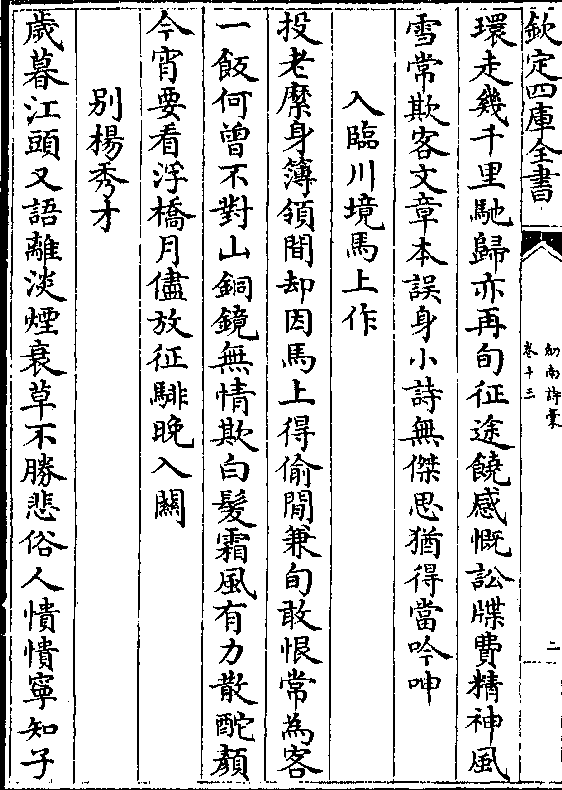 欽定四庫全書
劍南詩藁
卷十三
二
環走幾千里馳歸亦再旬征途饒感慨訟牒費精神風
雪常欺客文章本誤身小詩無傑思猶得當吟呻
入臨川境馬上作
投老縻身簿領間却因馬上得偷閒兼旬敢恨常為客
一飯何曾不對山銅鏡無情欺白髪霜風有力散酡顏
今宵要看浮橋月儘放征騑晚入關
別楊秀才
歲暮江頭又語離淡煙衰草不勝悲俗人憒憒寧知子